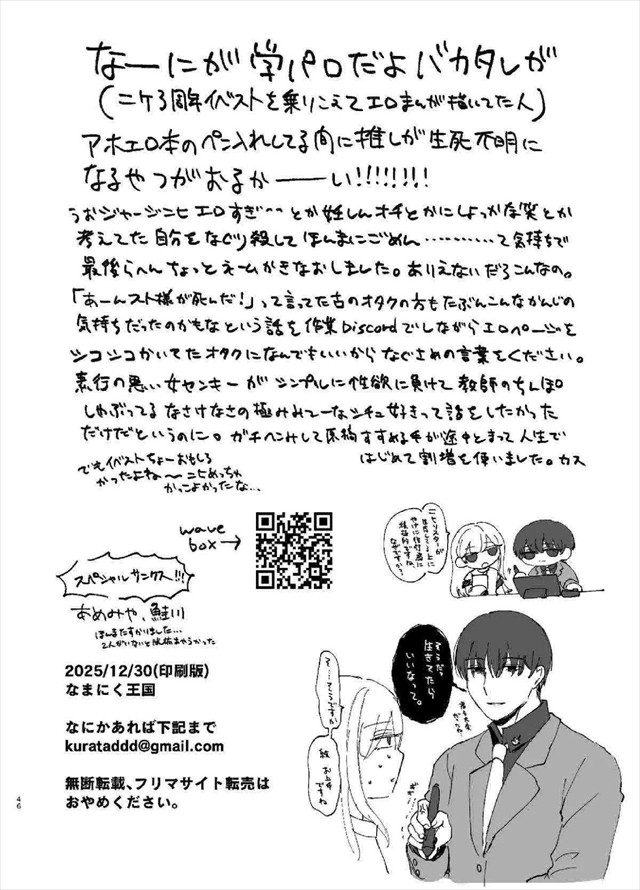 なーにが学パロだよバカタレが
(ニケ3周年イベストを乗りこえてエロまんが描いてた人)
アホエロ本のペン入れしてる間に推しが生死不明に
なるやつがおるかーーい!!!!!!!
うおジャージニヒエロすぎ〜〜とか妊しんオチとかにしよっかな笑とか
考えてた自分をなぐり殺してほんまにごめん…………って気持ちで
最後らへんちょっとネームかきなおしました。ありえないだろこんなの。
「あーんスト様が死んだ!」って言ってた古のオタクの方もたぶんこんなかんじの
気持ちだったのかもなという話を作業discordでしながらエロページを
シコシコかいてたオタクになんでもいいからなぐさめの言葉をください。
素行の悪い女ヤンキーがシンプルに性欲に負けて教師のちんぽ
しゃぶってるなさけなさの極みみてーなシチュ好きって話をしたかった
だけだというのに。ガチヘンみして原稿すすめる手が途中とまって人生で
はじめて割増を使いました。カス
でもイベストちょーおもしろ
かったよね〜ニヒめっちゃ
かっこよかったな…
wave
box→
スペシャルサンクス!!!
あめみや、鮭川
ほんまたすかりました…
2人がいないと
2025/12/30(印刷版)
なまにく王国
なにかあれば下記まで
kurataddd@gmail.com
無断転載、フリマサイト転売は
おやめください。
ニヒリスターが
そうだっ
生きてたら
いいなって。
そ……そうですか
絵お上手
ですね
46